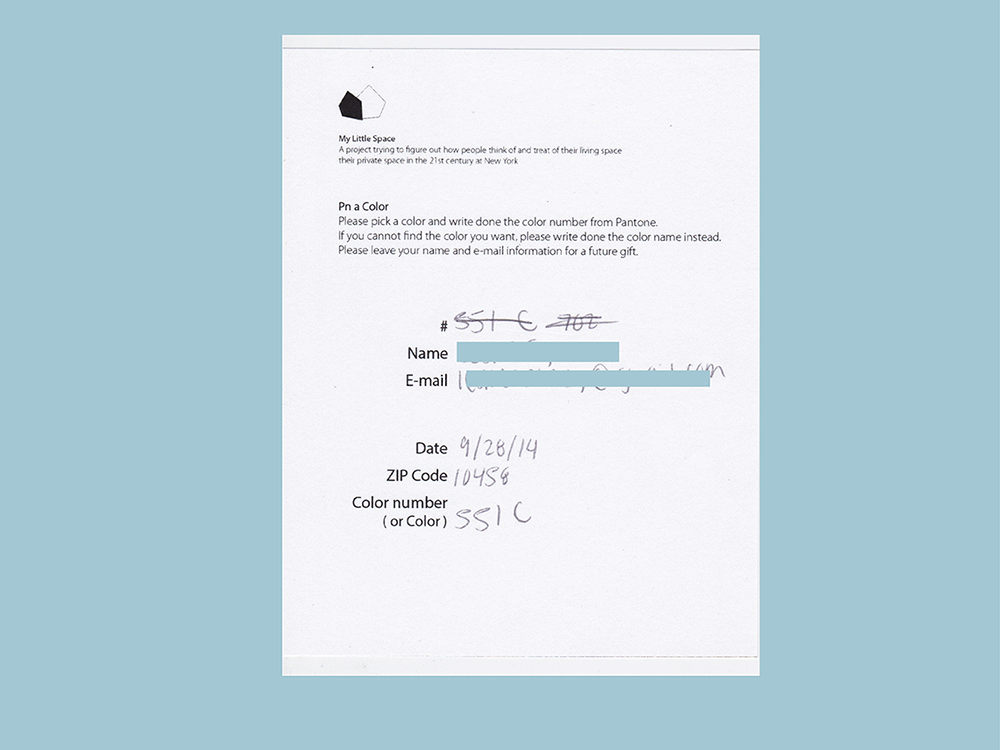 My Little Space
A project trying to figure out how people think of and treat of their living space
their private space in the 21st century at New York
Pn a Color
Please pick a color and write done the color number from Pantone.
If you cannot find the color you want, please write done the color name instead.
Please leave your name and e-mail information for a future gift.
# 551 C 702
Name
E-mail
Date 9/28/14
ZIP Code 10458
Color number
( or Color ) 551 C